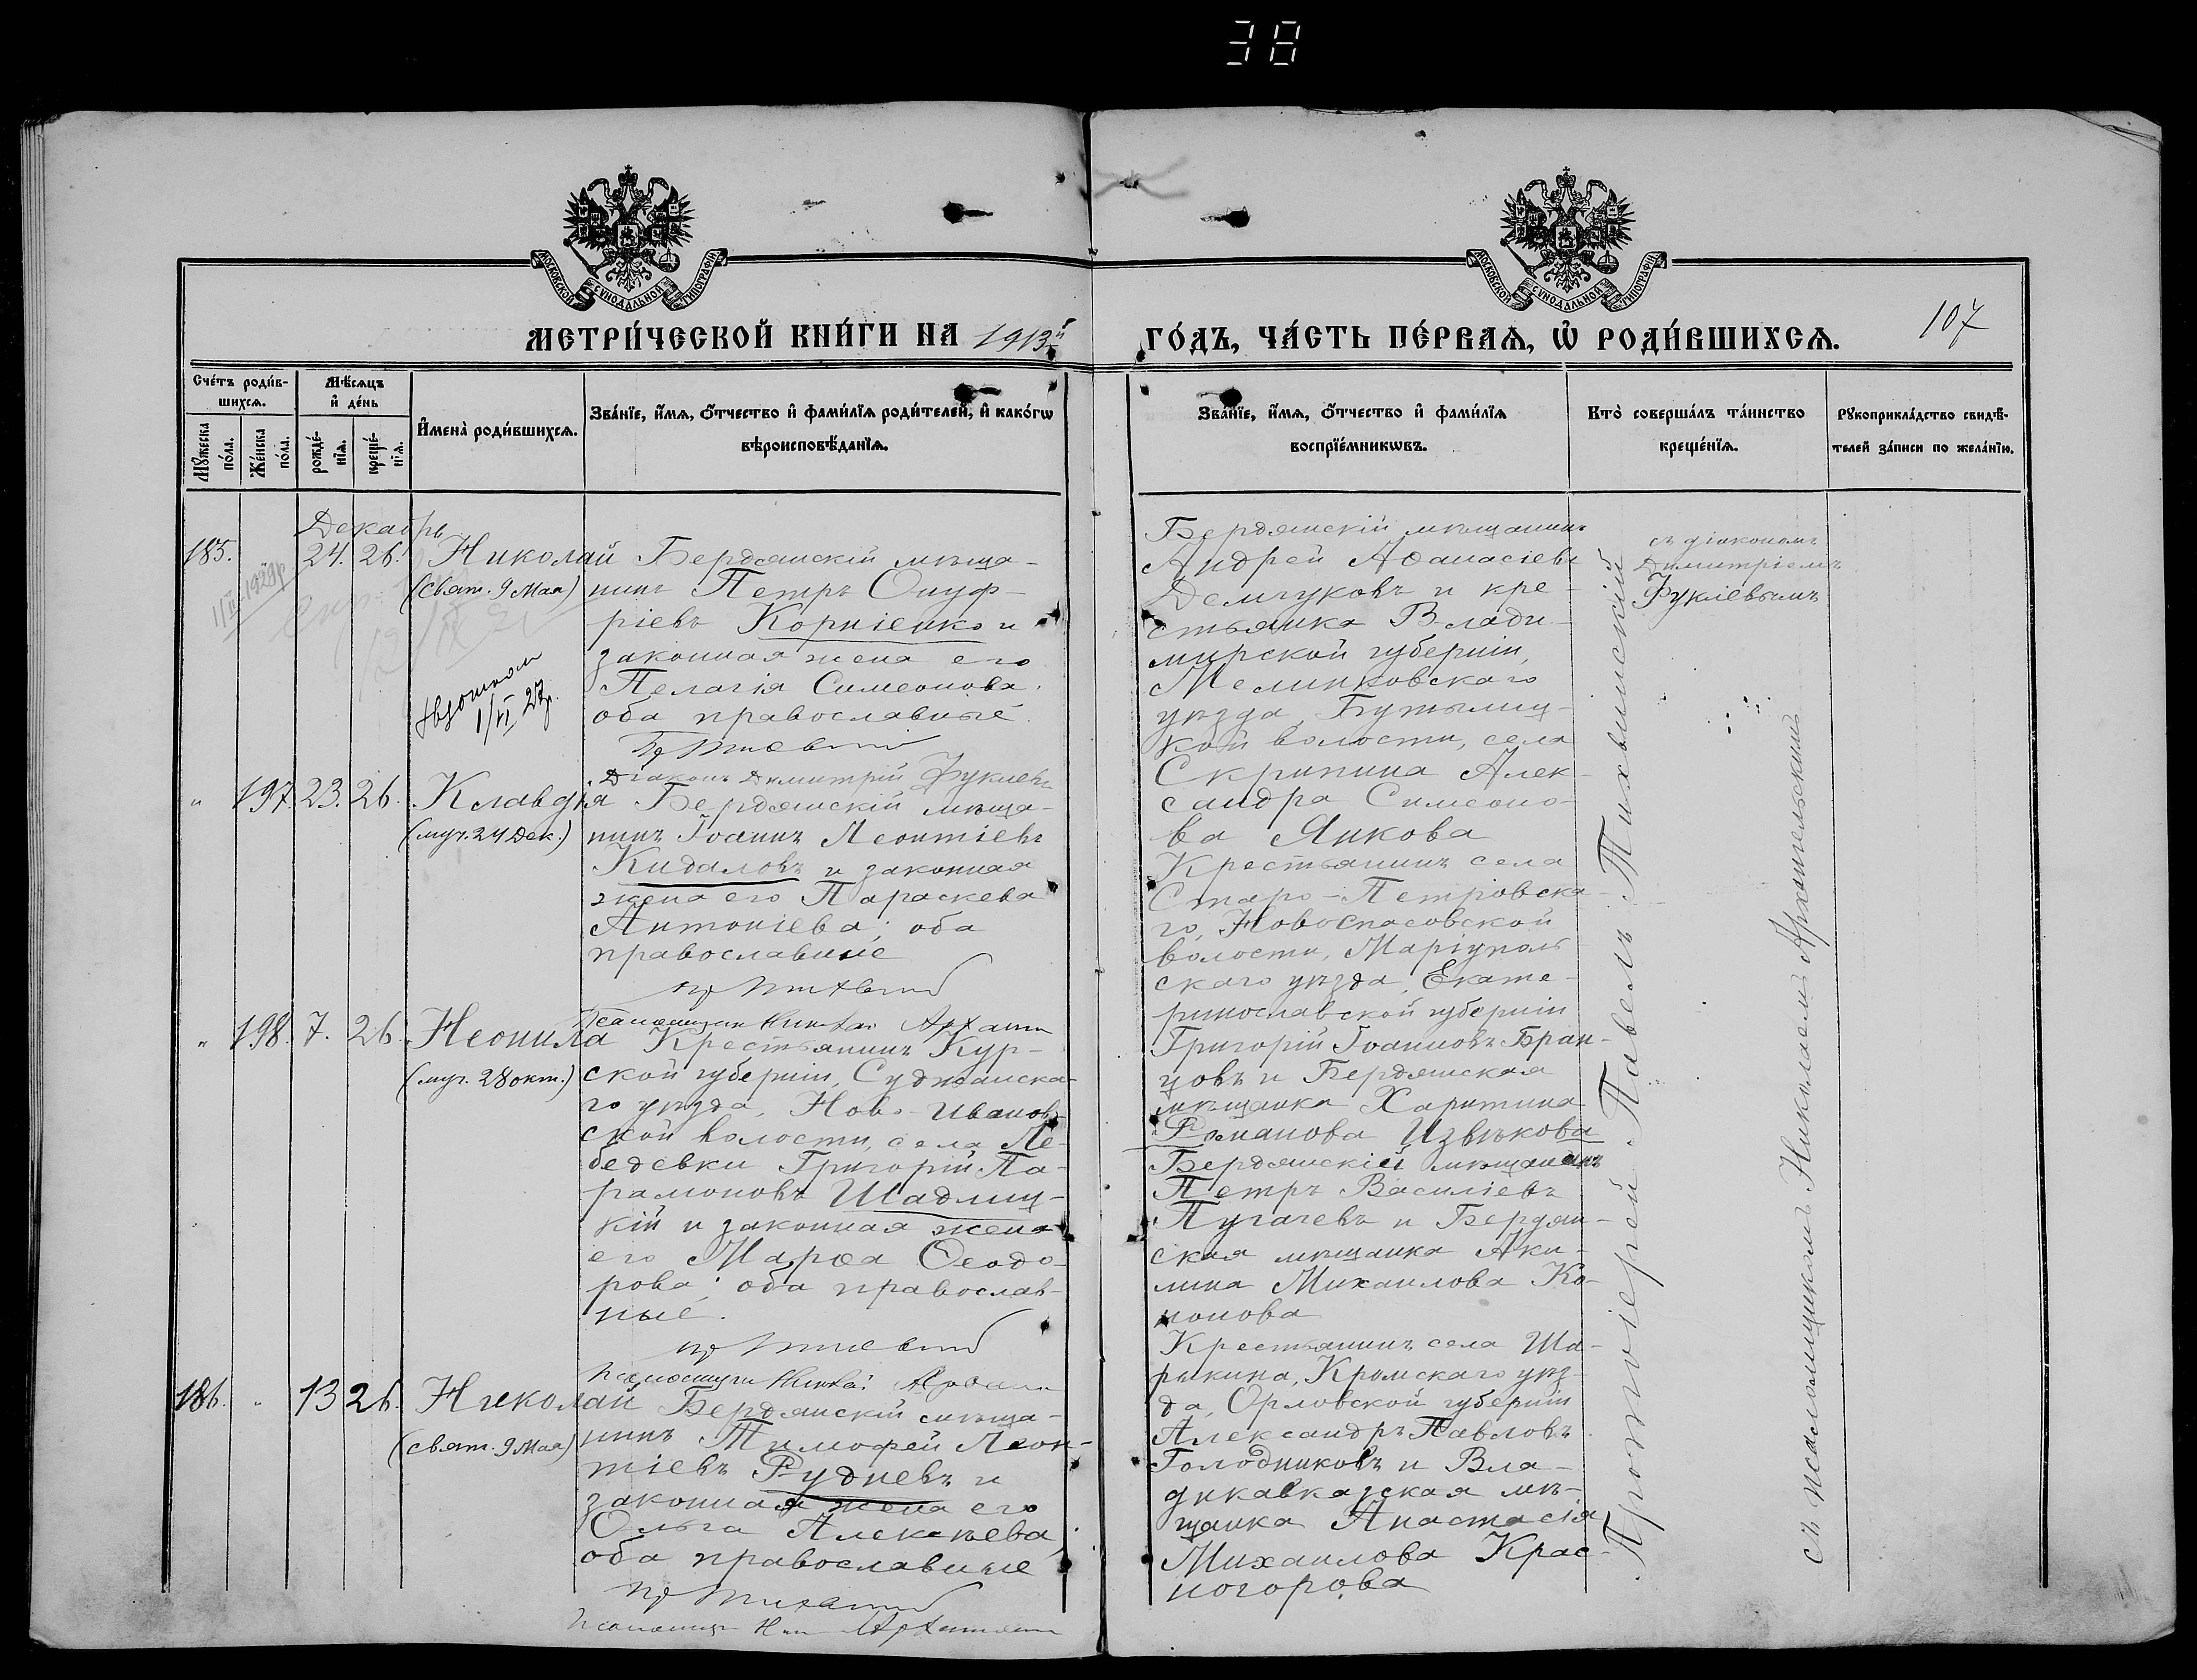 38
МОСКОВСКОЙ СѴНОДАЛЬНОЙ ТИПОГРАФІИ
МОСКОВСКОЙ СѴНОДАЛЬНОЙ ТИПОГРАФІИ
МЕТРИ́ЧЕСКОЙ КНИ́ГИ НА 1913й ГО́ДЪ, ЧА́СТЬ ПЕ́РВАѦ, Ѽ РОДИ́ВШИХСѦ.
107
Сче́тъ роди́в-
шихсѧ.
Мꙋжеска по́ла.
Же́нска по́ла.
Мѣ́сѧцъ
и҆ де́нь
рожде́-
нїѧ.
креще́-
нїѧ.
И҆мена̀ роди́вшихсѧ.
Зва́нїе, и҆́мѧ, ѻ҆́тчество и҆ фами́лїѧ роди́телей, и҆ како́гѡ
вѣроисповѣ́данїѧ.
Зва́нїе, и҆́мѧ, ѻ҆́тчество и҆ фами́лїѧ
воспрїе́мникѡвъ.
Кто̀ соверша́лъ та́инство
креще́нїѧ.
Рꙋкоприкла́дство свидѣ́-
телей за́писи по жела́нїю.
Декабрь
185. 24. 26. Николай
(свят. 9 Мая)
11/II 1929 р.
1/VI 27р.
Бердянскій мѣща-
нинъ Петръ Онуф-
ріевъ Корніенко и
законная жена его
Пелагія Симеонова.
оба православные.
Діаконъ Димитрій Фукіевъ
Бердянскій мѣщанинъ
Андрей Аѳанасіевъ
Демчуковъ и кре-
стьянка Влади-
мирской губерніи,
Меленковскаго
уѣзда, Бутылиц-
кой волости, села
Скрипина Алек-
сандра Симеоно-
ва Янкова
съ діакономъ
Димитріемъ
Фукіевымъ
" 197. 23. 26. Клавдія
(муч. 24 Дек.)
Бердянскій мѣща-
нинъ Іоаннъ Леонтіевъ
Кидаловъ и законная
жена его Параскева
Антоніева; оба
православные
Крестьянинъ села
Старо-Петровска-
го, Новоспасовской
волости, Маріуполь-
скаго уѣзда, Екате-
ринославской губерніи
Григорій Іоанновъ Бран-
цовъ и Бердянская
мѣщанка Харитина
Романова Извѣкова
" 198. 7. 26. Неонила
(муч. 28 окт.)
Крестьянинъ Кур-
ской губерніи, Суджанска-
го уѣзда, Ново-Иванов-
ской волости, села Ле-
бедевки Григорій Па-
рамоновъ Шадлиц-
кій и законная жена
его Марѳа Ѳеодо-
рова; оба православ-
ные.
Бердянскій мѣщанинъ
Петръ Василіевъ
Пугачевъ и Бердян-
ская мѣщанка Аки-
лина Михаилова Ко-
нонова
186. " 13 26. Николай
(свят. 9 Мая)
Бердянскій мѣща-
нинъ Тимофей Леон-
тіевъ Рудневъ и
законная жена его
Ольга Алексѣева;
оба православные
Крестьянинъ села Ша-
рыкина, Кромскаго уѣз-
да, Орловской губерніи
Александръ Павловъ
Голодниковъ и Вла-
дикавказская мѣ-
щанка Анастасія
Михаилова Крас-
ногорова
Протоіерей Павелъ Тихвинскій
съ псаломщикомъ Николаемъ Архангельскимъ